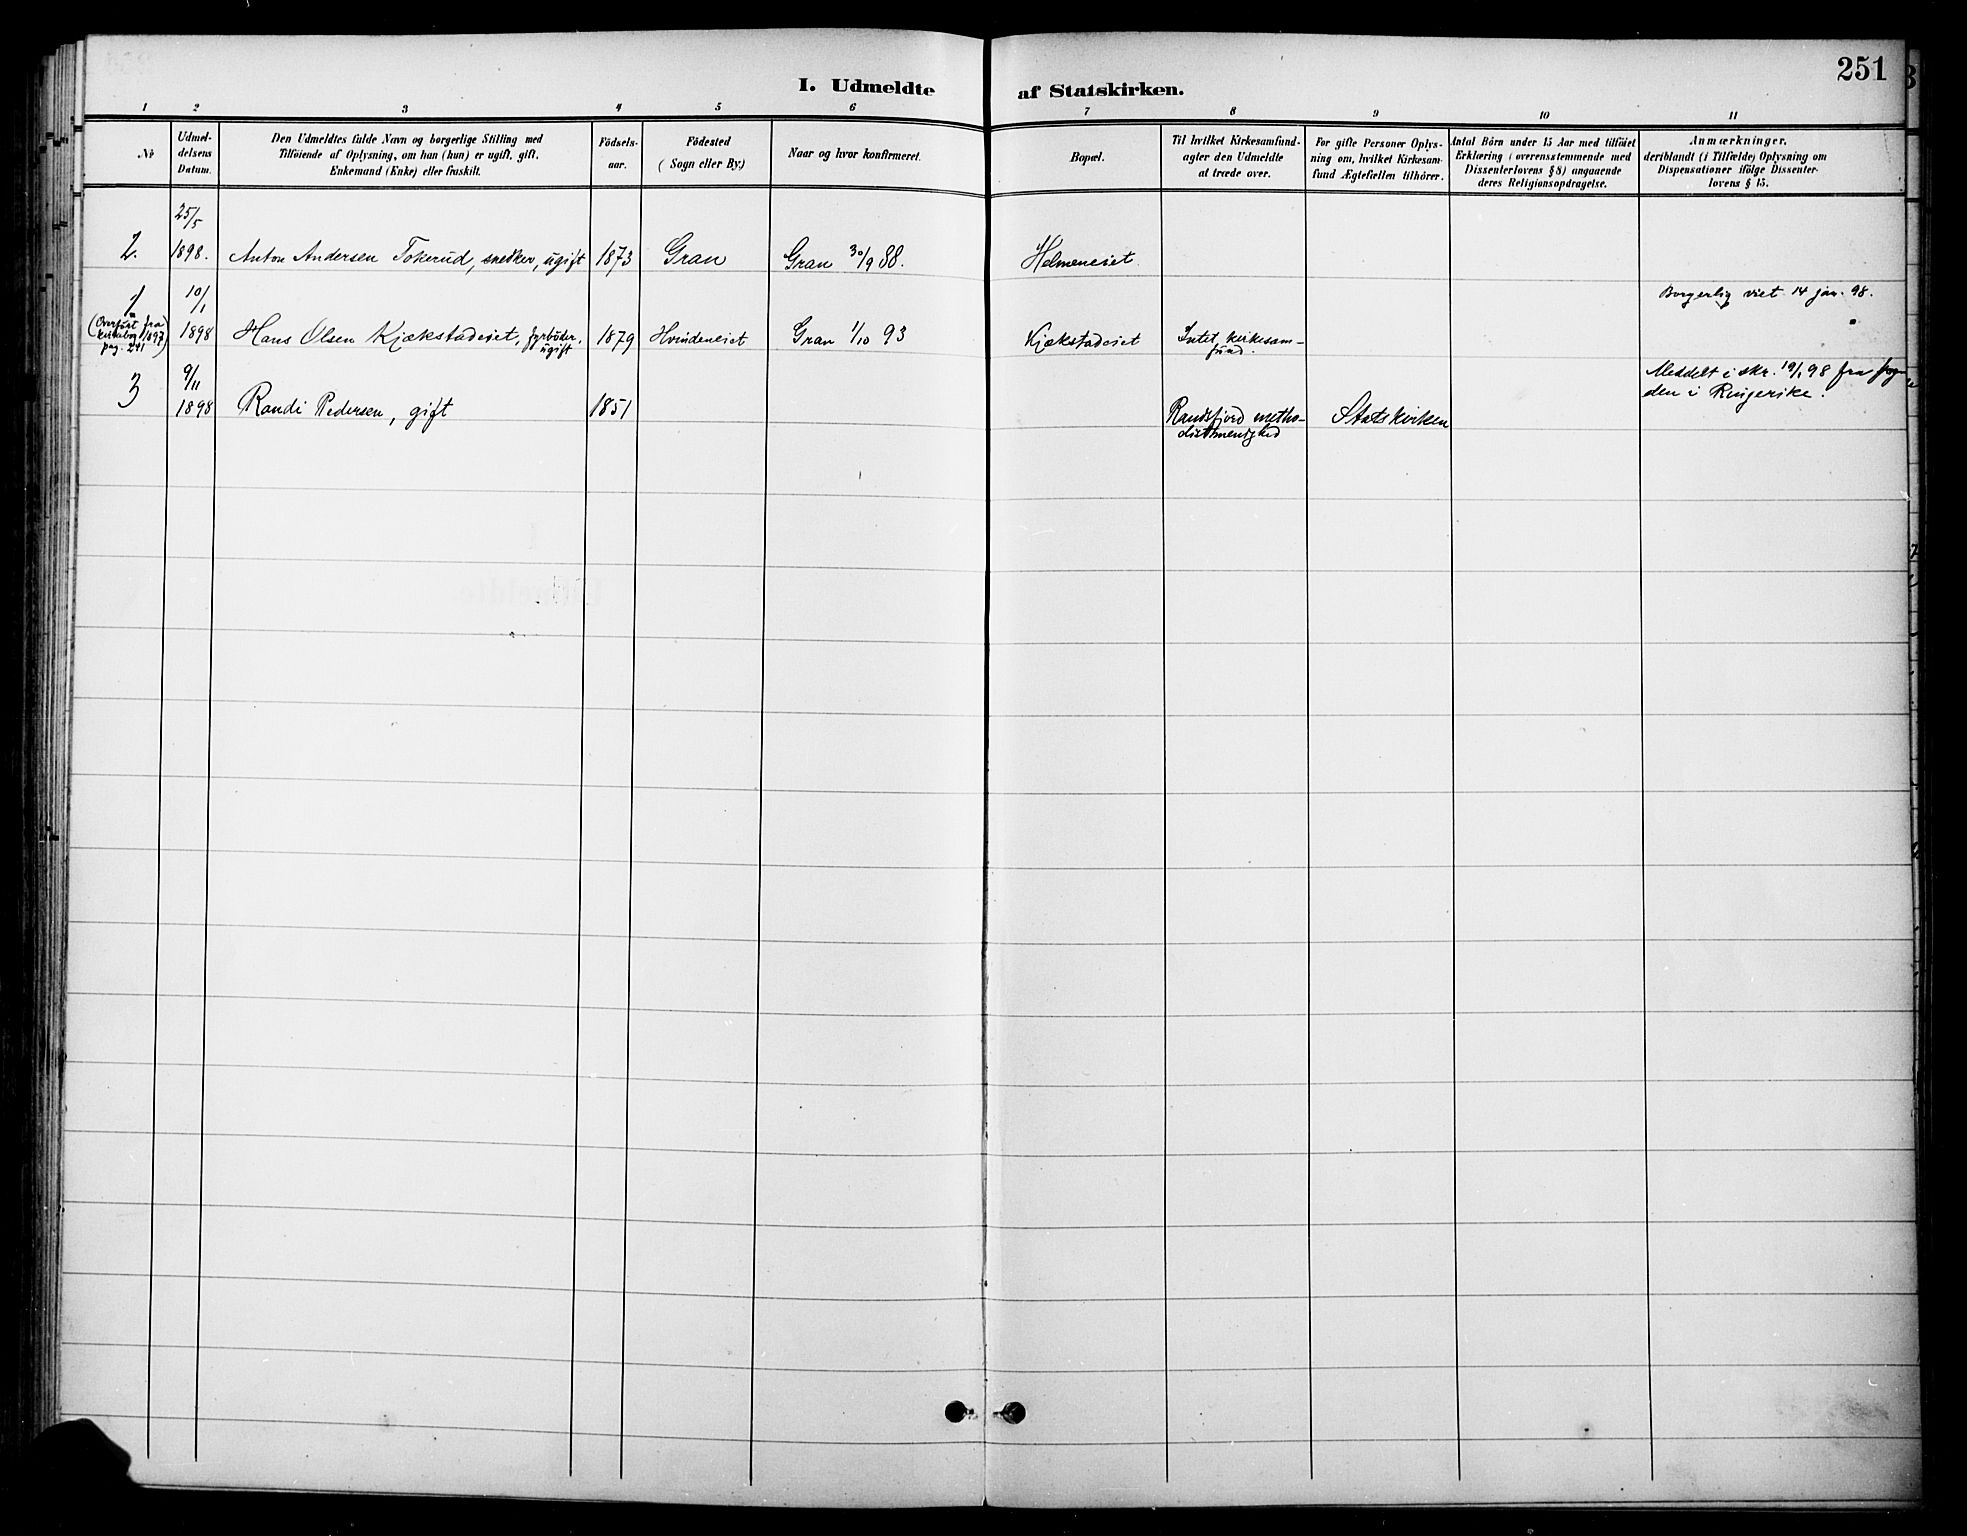 251
I. Udmeldte af Statskirken.
1 2 3 4 5 6 7 8 9 10 11
No
Udmel-
delsens
Datum.
Den Udmeldtes fulde Navn og borgerlige Stilling med
Tilföiende af Oplysning, om han (hun) er ugift, gift,
Enkemand (Enke) eller fraskilt.
Födsels-
aar.
Födested
(Sogn eller By)
Naar og hvor konfirmeret.
Bopæl.
Til hvilket Kirkesamfund-
agter den Udmeldte
at træde over.
For gifte Personer Oplys-
ning om, hvilket Kirkesam-
fund Ægtefællen tilhörer.
Antal Börn under 15 Aar med tilföiet
Erklæring (overensstemmende med
Dissenterlovens § 8) angaaende
deres Religionsopdragelse.
Anmærkninger,
deriblandt (i Tilfælde) Oplysning om
Dispensationer ifölge Dissenter-
lovens § 15.
25/5
2. 1898. Anton Andersen Tokerud, snedker, ugift 1873 Gran Gran 30/9 88. Helmeneiet
1 10/1 Borgerlig viet 14 jan. 98.
(Overført fra
kirkebog 1897
pag. 241)
1898 Hans Olsen Kjækstadeiet, fyrbøder, 1879 Hvindeneiet Gran 1/10 93 Kjækstadeiet Intet kirkesam-
ugift fund.
3 9/11 Meddelt i skr. 19/1 98 fra fog-
den i Ringerike.
1898 Randi Pedersen, gift 1851 Randsfjord metho- Statskirken
distmenighed